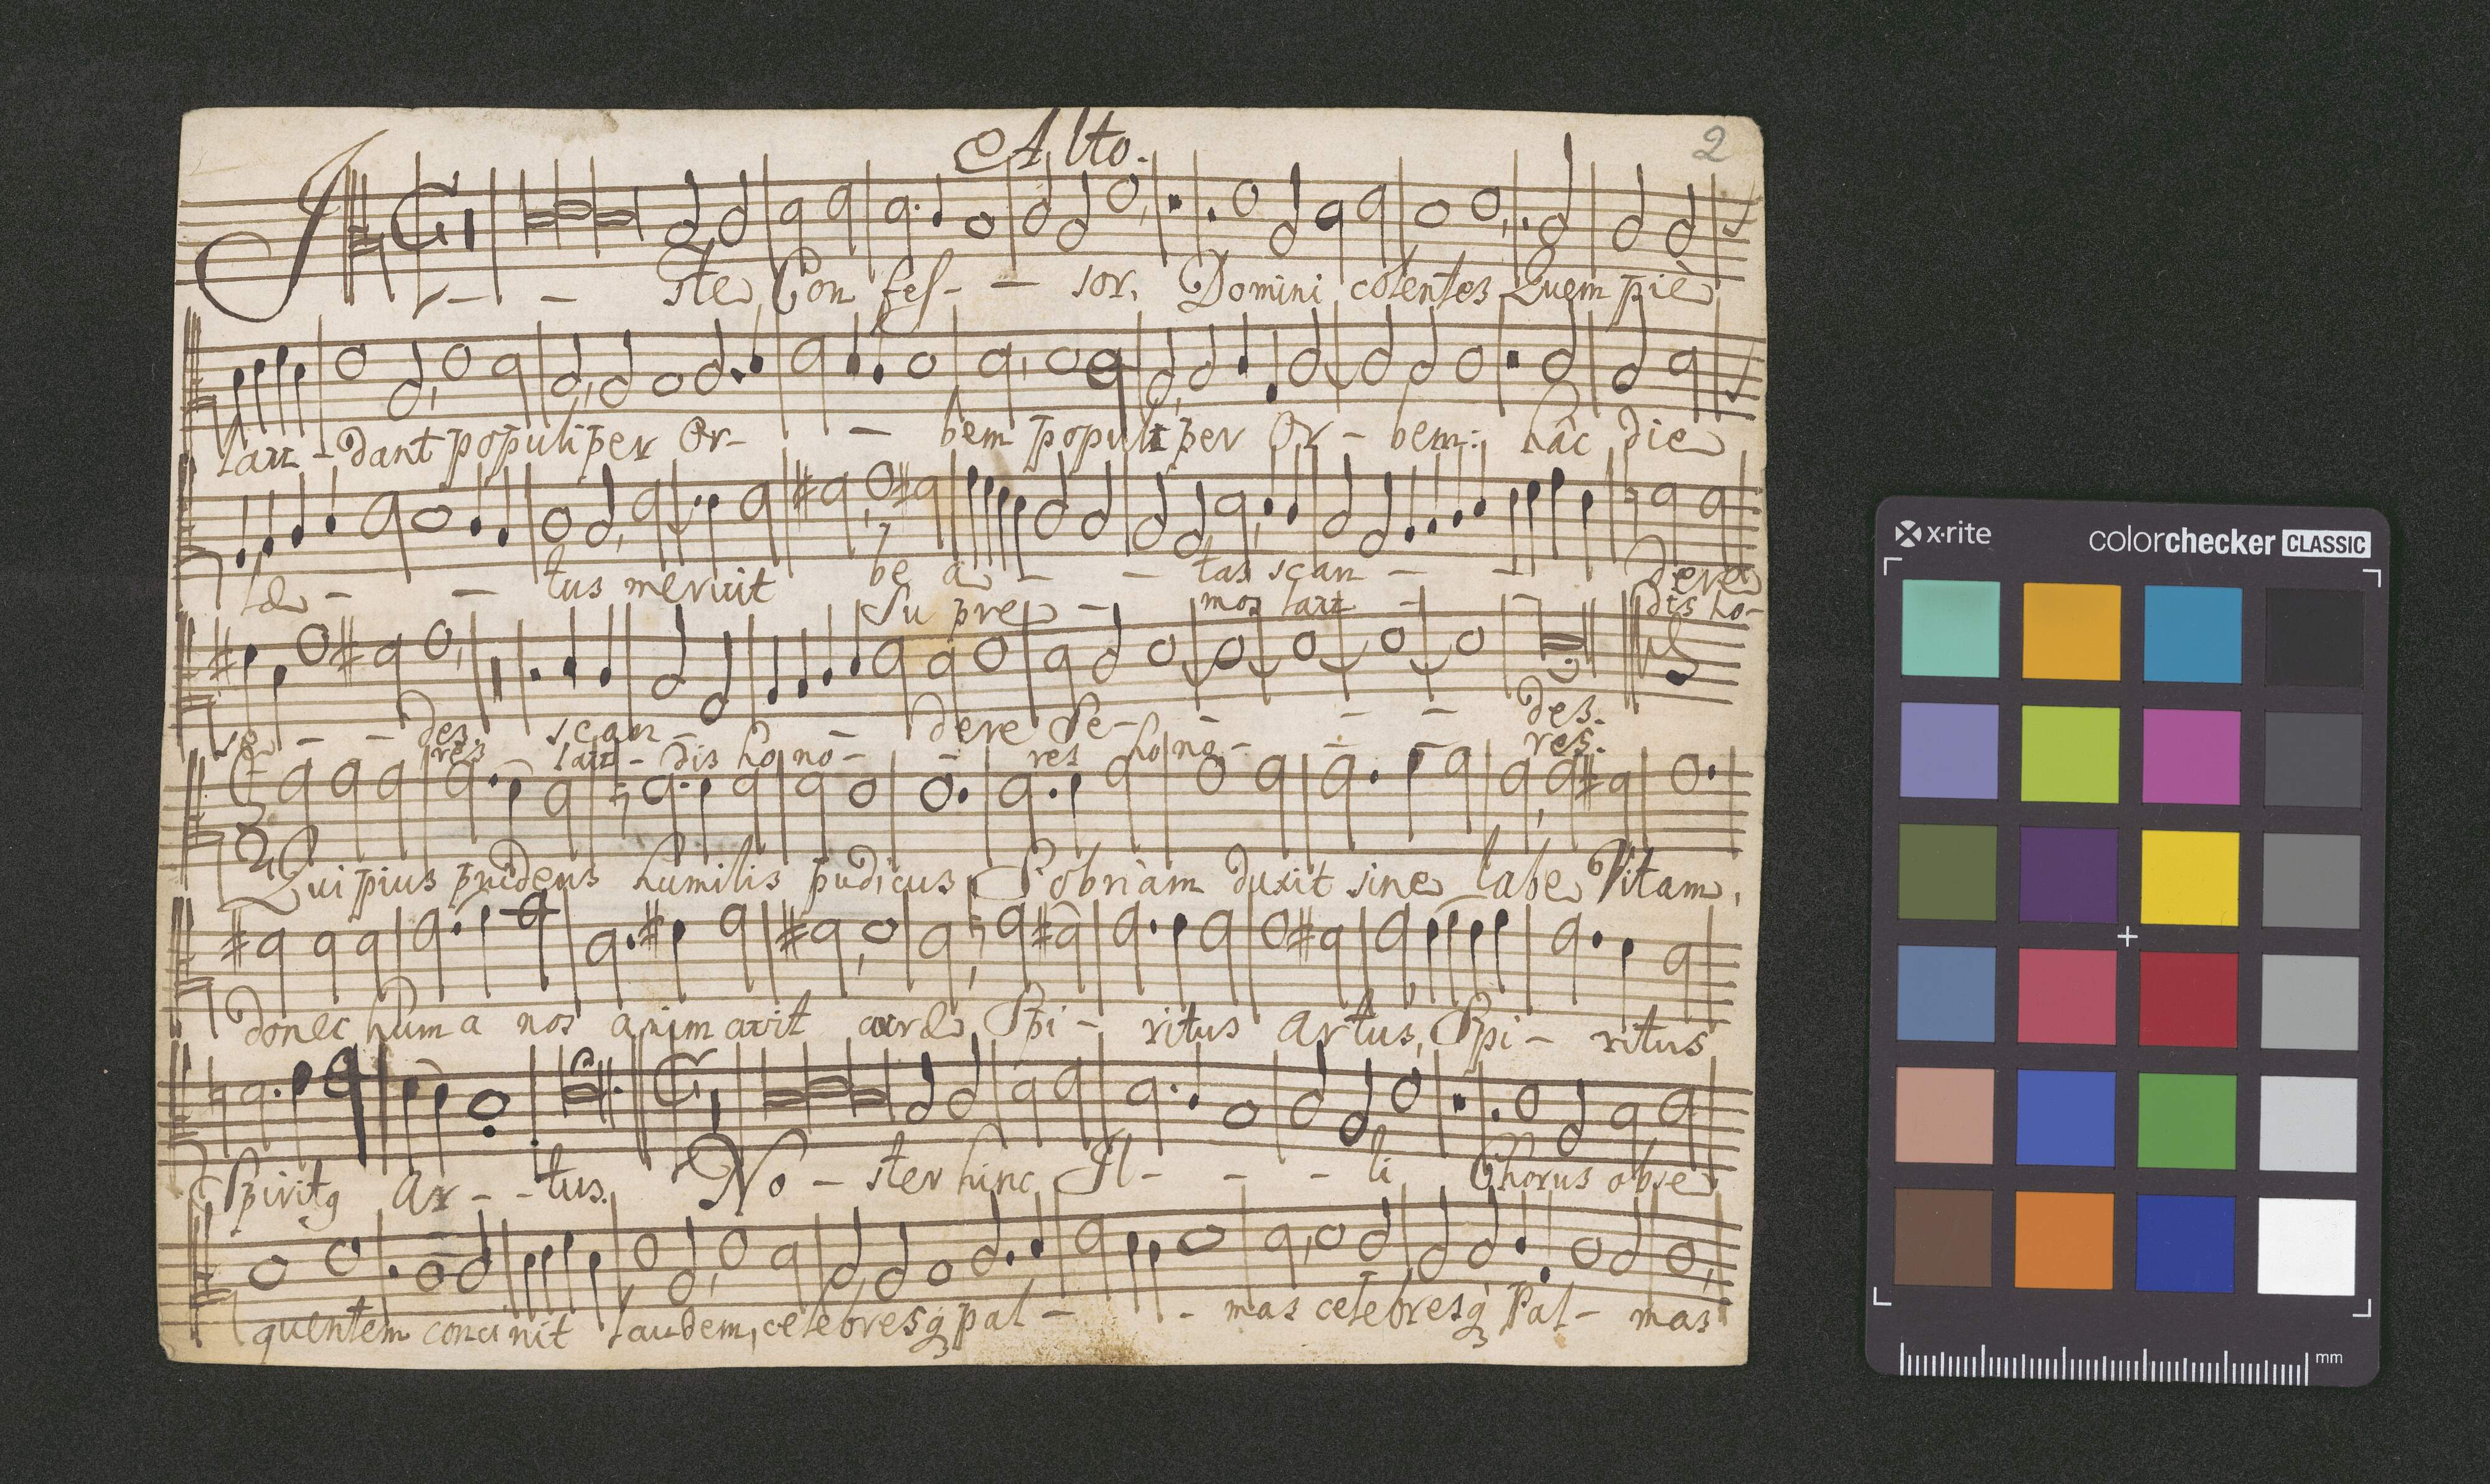 Alto.
2
I - - Ste Con fes - - sor, Domini colentes Quem piè
lau - dant populi per Or - - bem populi per Or - bem: hâc die
Læ - - tus meruit be a - - tas scan - - dere
Su pre - mos lau - - dis ho -
se - - des. scan - - dere Se - - - - des.
res lau - dis ho no - - res ho no - - - res.
Qui pius prudens humilis pudicus Sobriam duxit sine labe Vitam,
donec huma nos animavit auræ Spi - ritus Artus, Spi - ritus
Spiritq Ar - - tus. No - ster hinc Il - - - li Chorus obse
quentem concinit laudem, celebresq palm - - mas celebresq Pal - mas
x·rite
colorchecker CLASSIC
mm